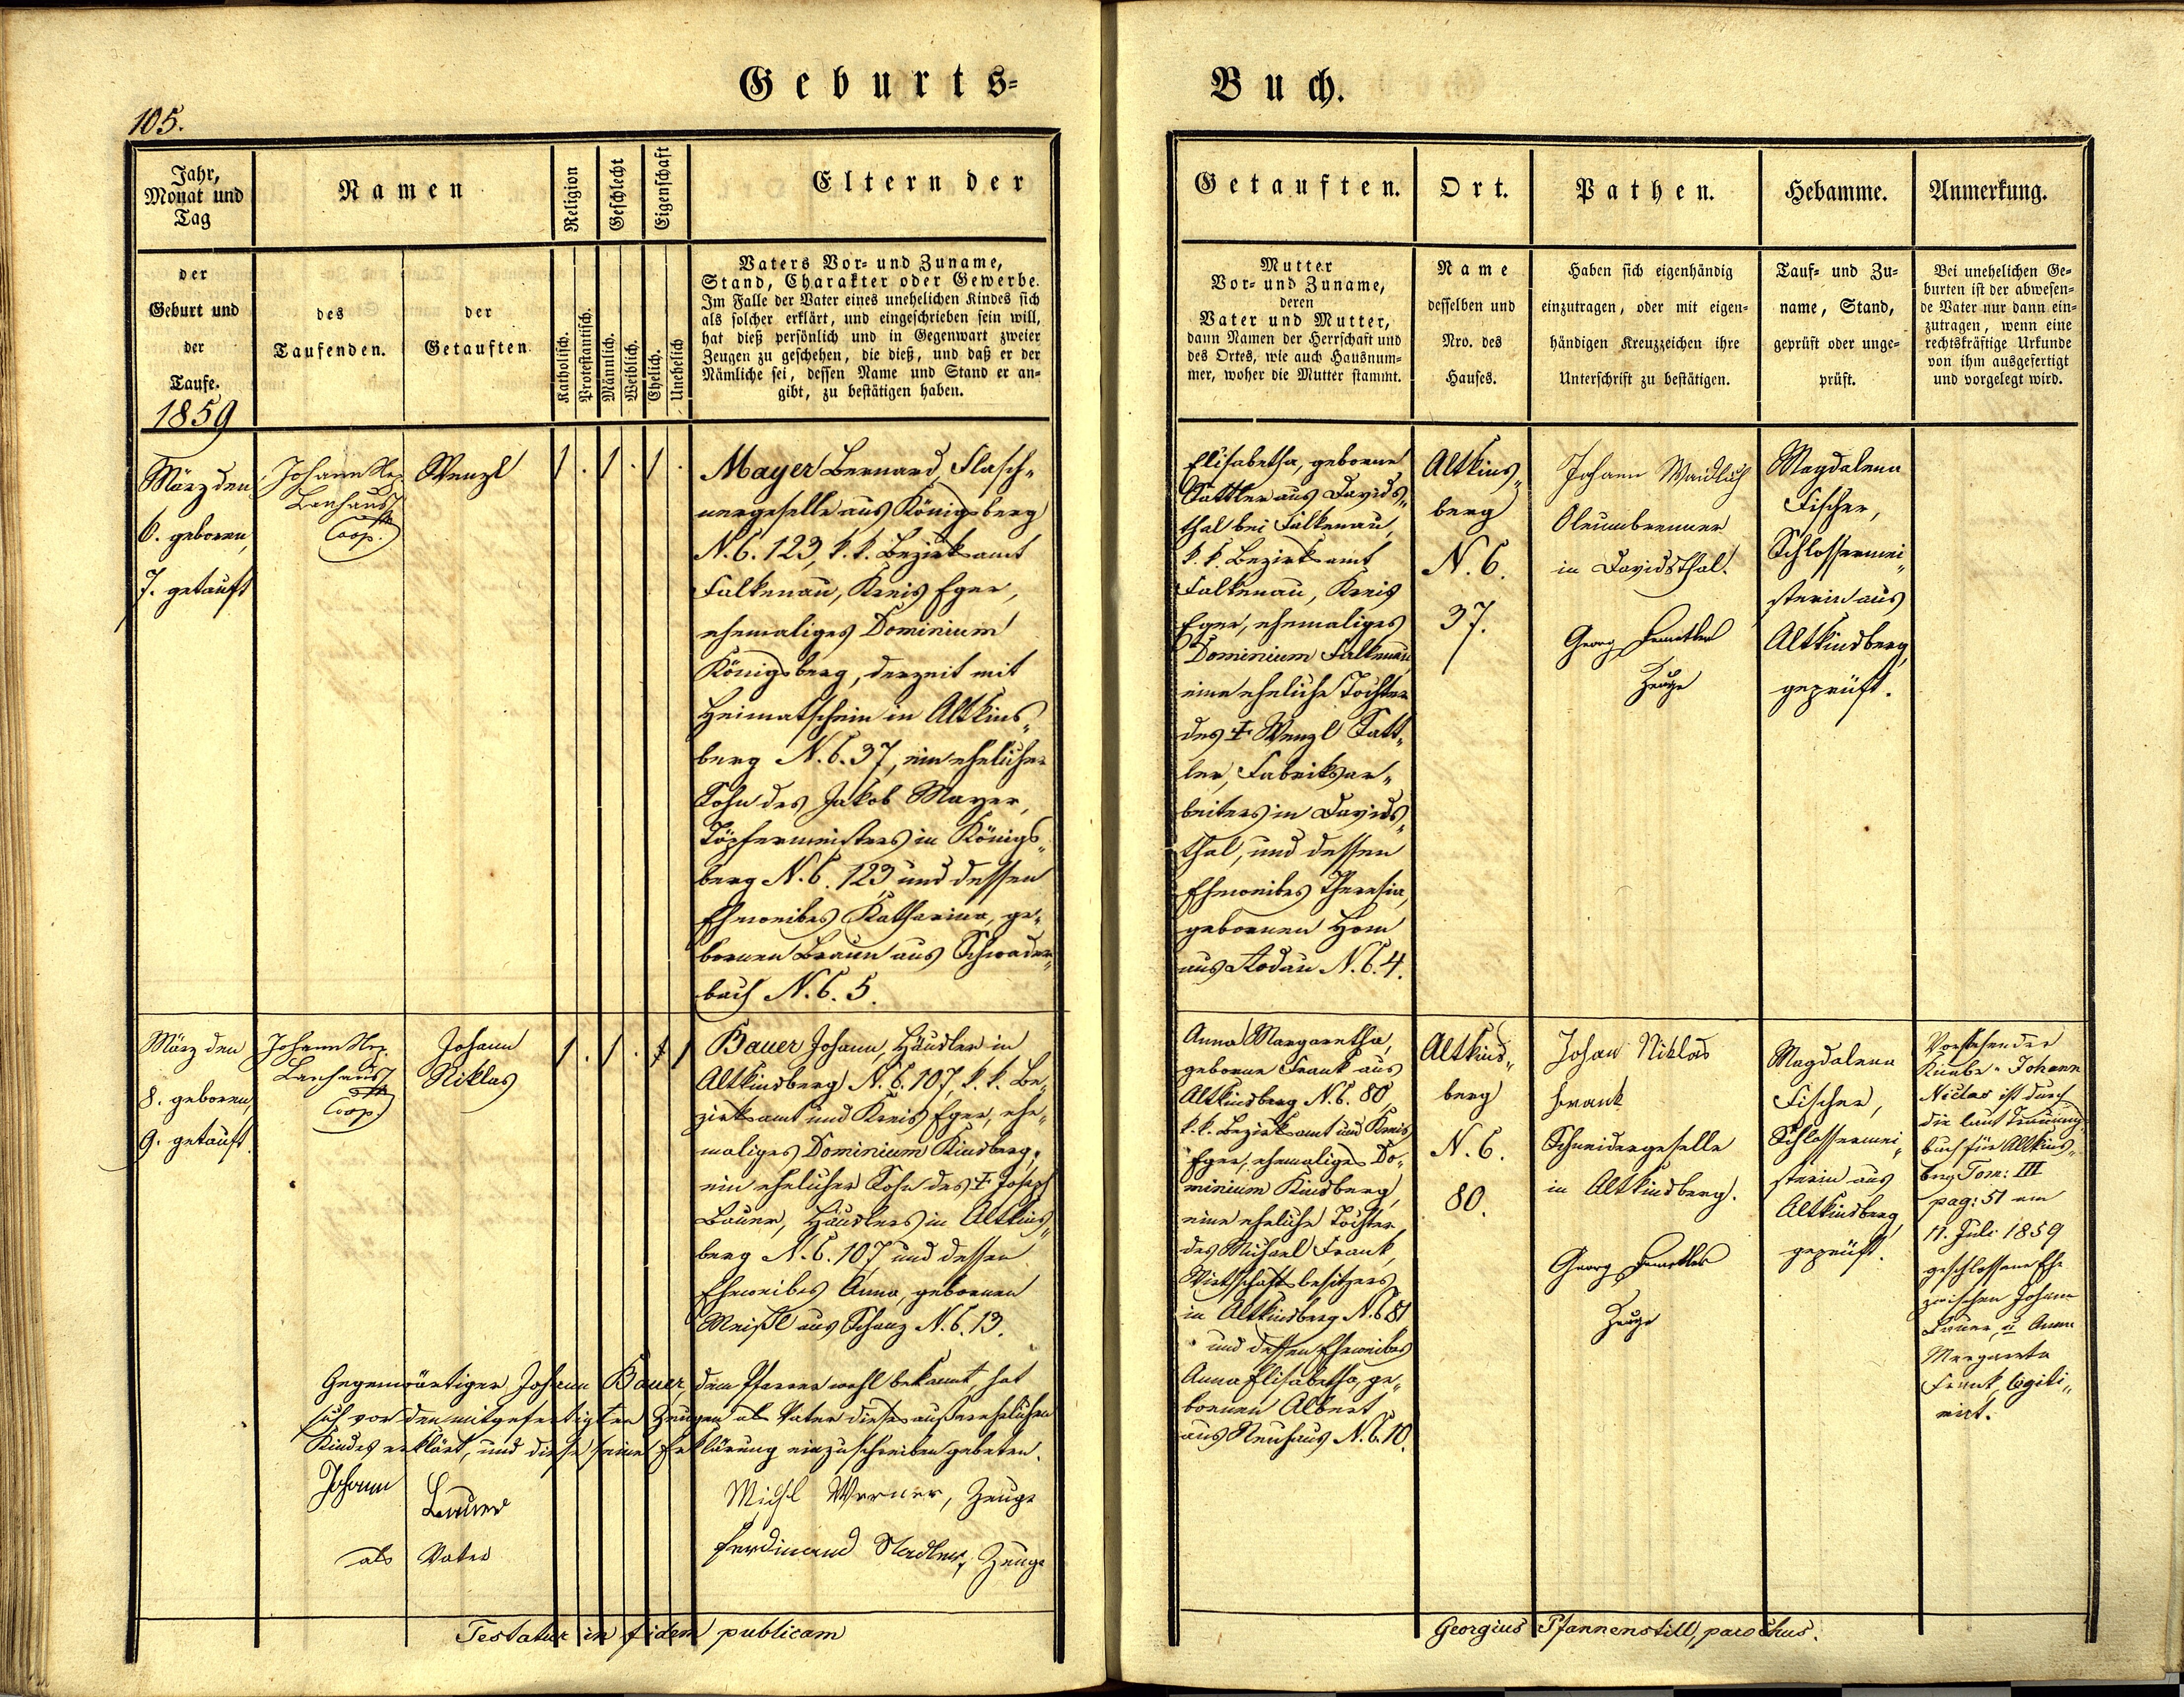 Geburts-
Buch.
105.
Jahr,
Monat und
Tag
Namen
Religion
Geschlecht
Eigenschaft
Eltern der
der
Geburt und
der
Taufe.
1859
des
Taufenden.
der
Getauften
Katholisch.
Protestantisch.
Männlich.
Weiblich.
Ehelich.
Unehelich
Vaters Vor- und Zuname,
Stand, Charakter oder Gewerbe.
Im Falle der Vater eines unehelichen Kindes sich
als solcher erklärt, und eingeschrieben sein will,
hat dieß persönlich und in Gegenwart zweier
Zeugen zu geschehen, die dieß, und daß er der
Nämliche sei, dessen Name und Stand er an-
gibt, zu bestätigen haben.
März den
6. geboren,
7. getauft
Johann Nep.
Coop.
Wenzl
1 . 1 . 1 .
Mayer Bernard, Flasch-
nergeselle aus Königsberg
N. C. 123, k. k. Bezirksamt
Falkenau, Kreis Eger,
ehemaliges Dominium
Königsberg, derzeit mit
Heimatschein in Altkins-
berg N. C. 37, ein ehelicher
Sohn des Jakob Mayer,
Töpfermeisters in Königs-
berg N. C. 123 und dessen
Eheweibes Katharina, ge-
bornen Braun aus Schwader-
bach N. C. 5.
März den
8. geboren,
9. getauft.
Johann Nep.
Coop.
Johann
Niklas
1 . 1 . 1 1
Bauer Johann, Häusler in
Altkindsberg N. C. 107, k. k. Be-
zirksamt und Kreis Eger, ehe-
maliges Dominium Kindsberg,
ein ehelicher Sohn des † Joseph
Bauer, Häuslers in Altkins-
berg N. C. 107 und dessen
Eheweibes Anna, gebornen
Meißl aus Schanz N. C. 13.
Gegenwärtiger Johann Bauer, dem Pfarrer wohl bekannt, hat
sich vor den mitgefertigten Zeugen als Vater dieses außerehelichen
Kindes erklärt, und diese seine Erklärung einzuschreiben gebeten.
Johann
Bauer
als Vater
Michl Werner, Zeuge
Ferdinand Stadler, Zeuge
Testatur in fidem publicam
Getauften.
Ort.
Pathen.
Hebamme.
Anmerkung.
Mutter
Vor- und Zuname,
deren
Vater und Mutter,
dann Namen der Herrschaft und
des Ortes, wie auch Hausnum-
mer, woher die Mutter stammt.
Name
desselben und
Nro. des
Hauses.
Haben sich eigenhändig
einzutragen, oder mit eigen-
händigen Kreuzzeichen ihre
Unterschrift zu bestätigen.
Tauf- und Zu-
name, Stand,
geprüft oder unge-
prüft.
Bei unehelichen Ge-
burten ist der abwesen-
de Vater nur dann ein-
zutragen, wenn eine
rechtskräftige Urkunde
von ihm ausgefertigt
und vorgelegt wird.
Elisabetha, geborne
Sattler aus Davids-
thal bei Falkenau,
k. k. Bezirksamt
Falkenau, Kreis
Eger, ehemaliges
Dominium Falkenau
eine eheliche Tochter
des † Wenzl Satt-
ler, Fabriksar-
beiters in Davids-
thal, und dessen
Eheweibes Theresia,
gebornen Horn
aus Rodau N. C. 4.
Altkins-
berg
N. C.
37.
Johann Waidlich
Oleumbrenner
in Davidsthal.
Georg
Zeuge
Magdalena
Fischer,
Schlossermei-
sterin aus
Altkindsberg,
geprüft.
Anna Margaretha,
geborne Frank aus
Altkindsberg N. C. 80,
k. k. Bezirksamt und Kreis
Eger, ehemaliges Do-
minium Kindsberg,
eine eheliche Tochter
des Michael Frank,
Wirthschaftsbesitzers
in Altkindsberg N. C. 81
und dessen Eheweibes
Anna Elisabetha, ge-
bornen Albert
aus Neuhaus N. C. 10.
Altkins-
berg
N. C.
80.
Johan Niklas
Frank
Schneidergeselle
in Altkindsberg.
Georg
Zeuge
Magdalena
Fischer,
Schlossermei-
sterin aus
Altkindsberg,
geprüft.
Vorstehender
Knabe Johann
Niclas ist durch
die laut Trauungs-
buch für Altkins-
berg Tom: III
pag: 51 am
11. Juli 1859
geschlossene Ehe
zwischen Johann
Bauer u Anna
Margareta
Frank, legiti-
mirt.
Georgius Pfannenstill, parochus.